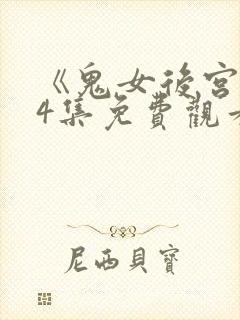 《鬼女後宮
4集免費觀
尼西貝寶